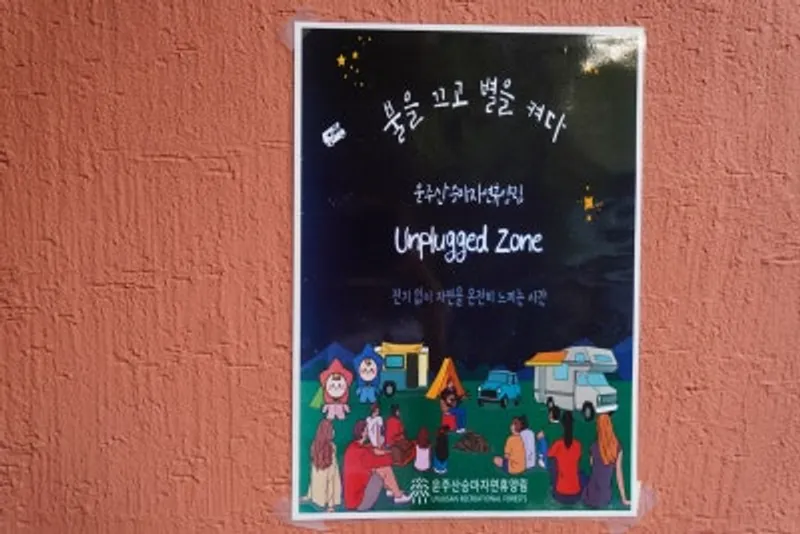 불을 끄고 별을 켜다
운주산승마자연휴양림
Unplugged Zone
전기 없이 자연을 온전히 느끼는 시간
운주산승마자연휴양림
UNJUSAN RECREATIONAL FORESTS